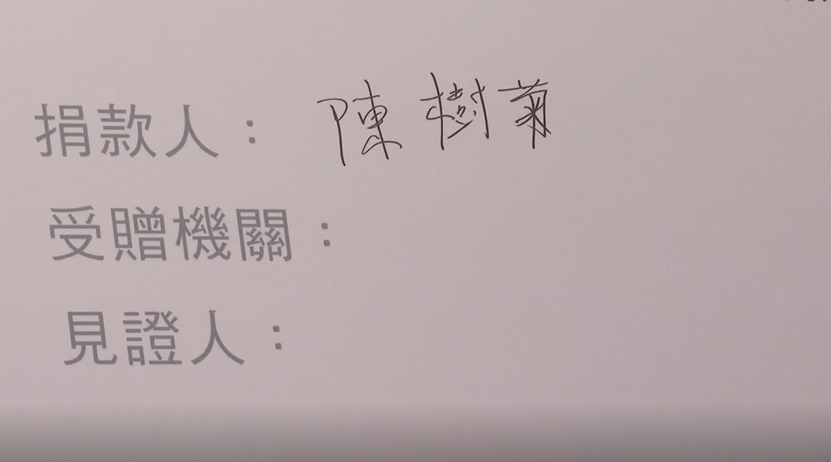 捐款人： 陳樹菊
受贈機關：
見證人：